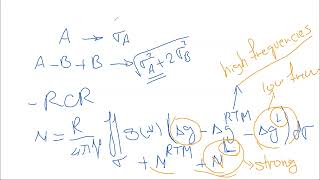 A → σA
A - B + B → √σ²A + 2σ²B
high frequencies
- RCR
N = R/4πγ ∬σ S(ψ) (Δg - Δg^RTM - Δg^L) dσ
+ N^RTM + N^L
strong